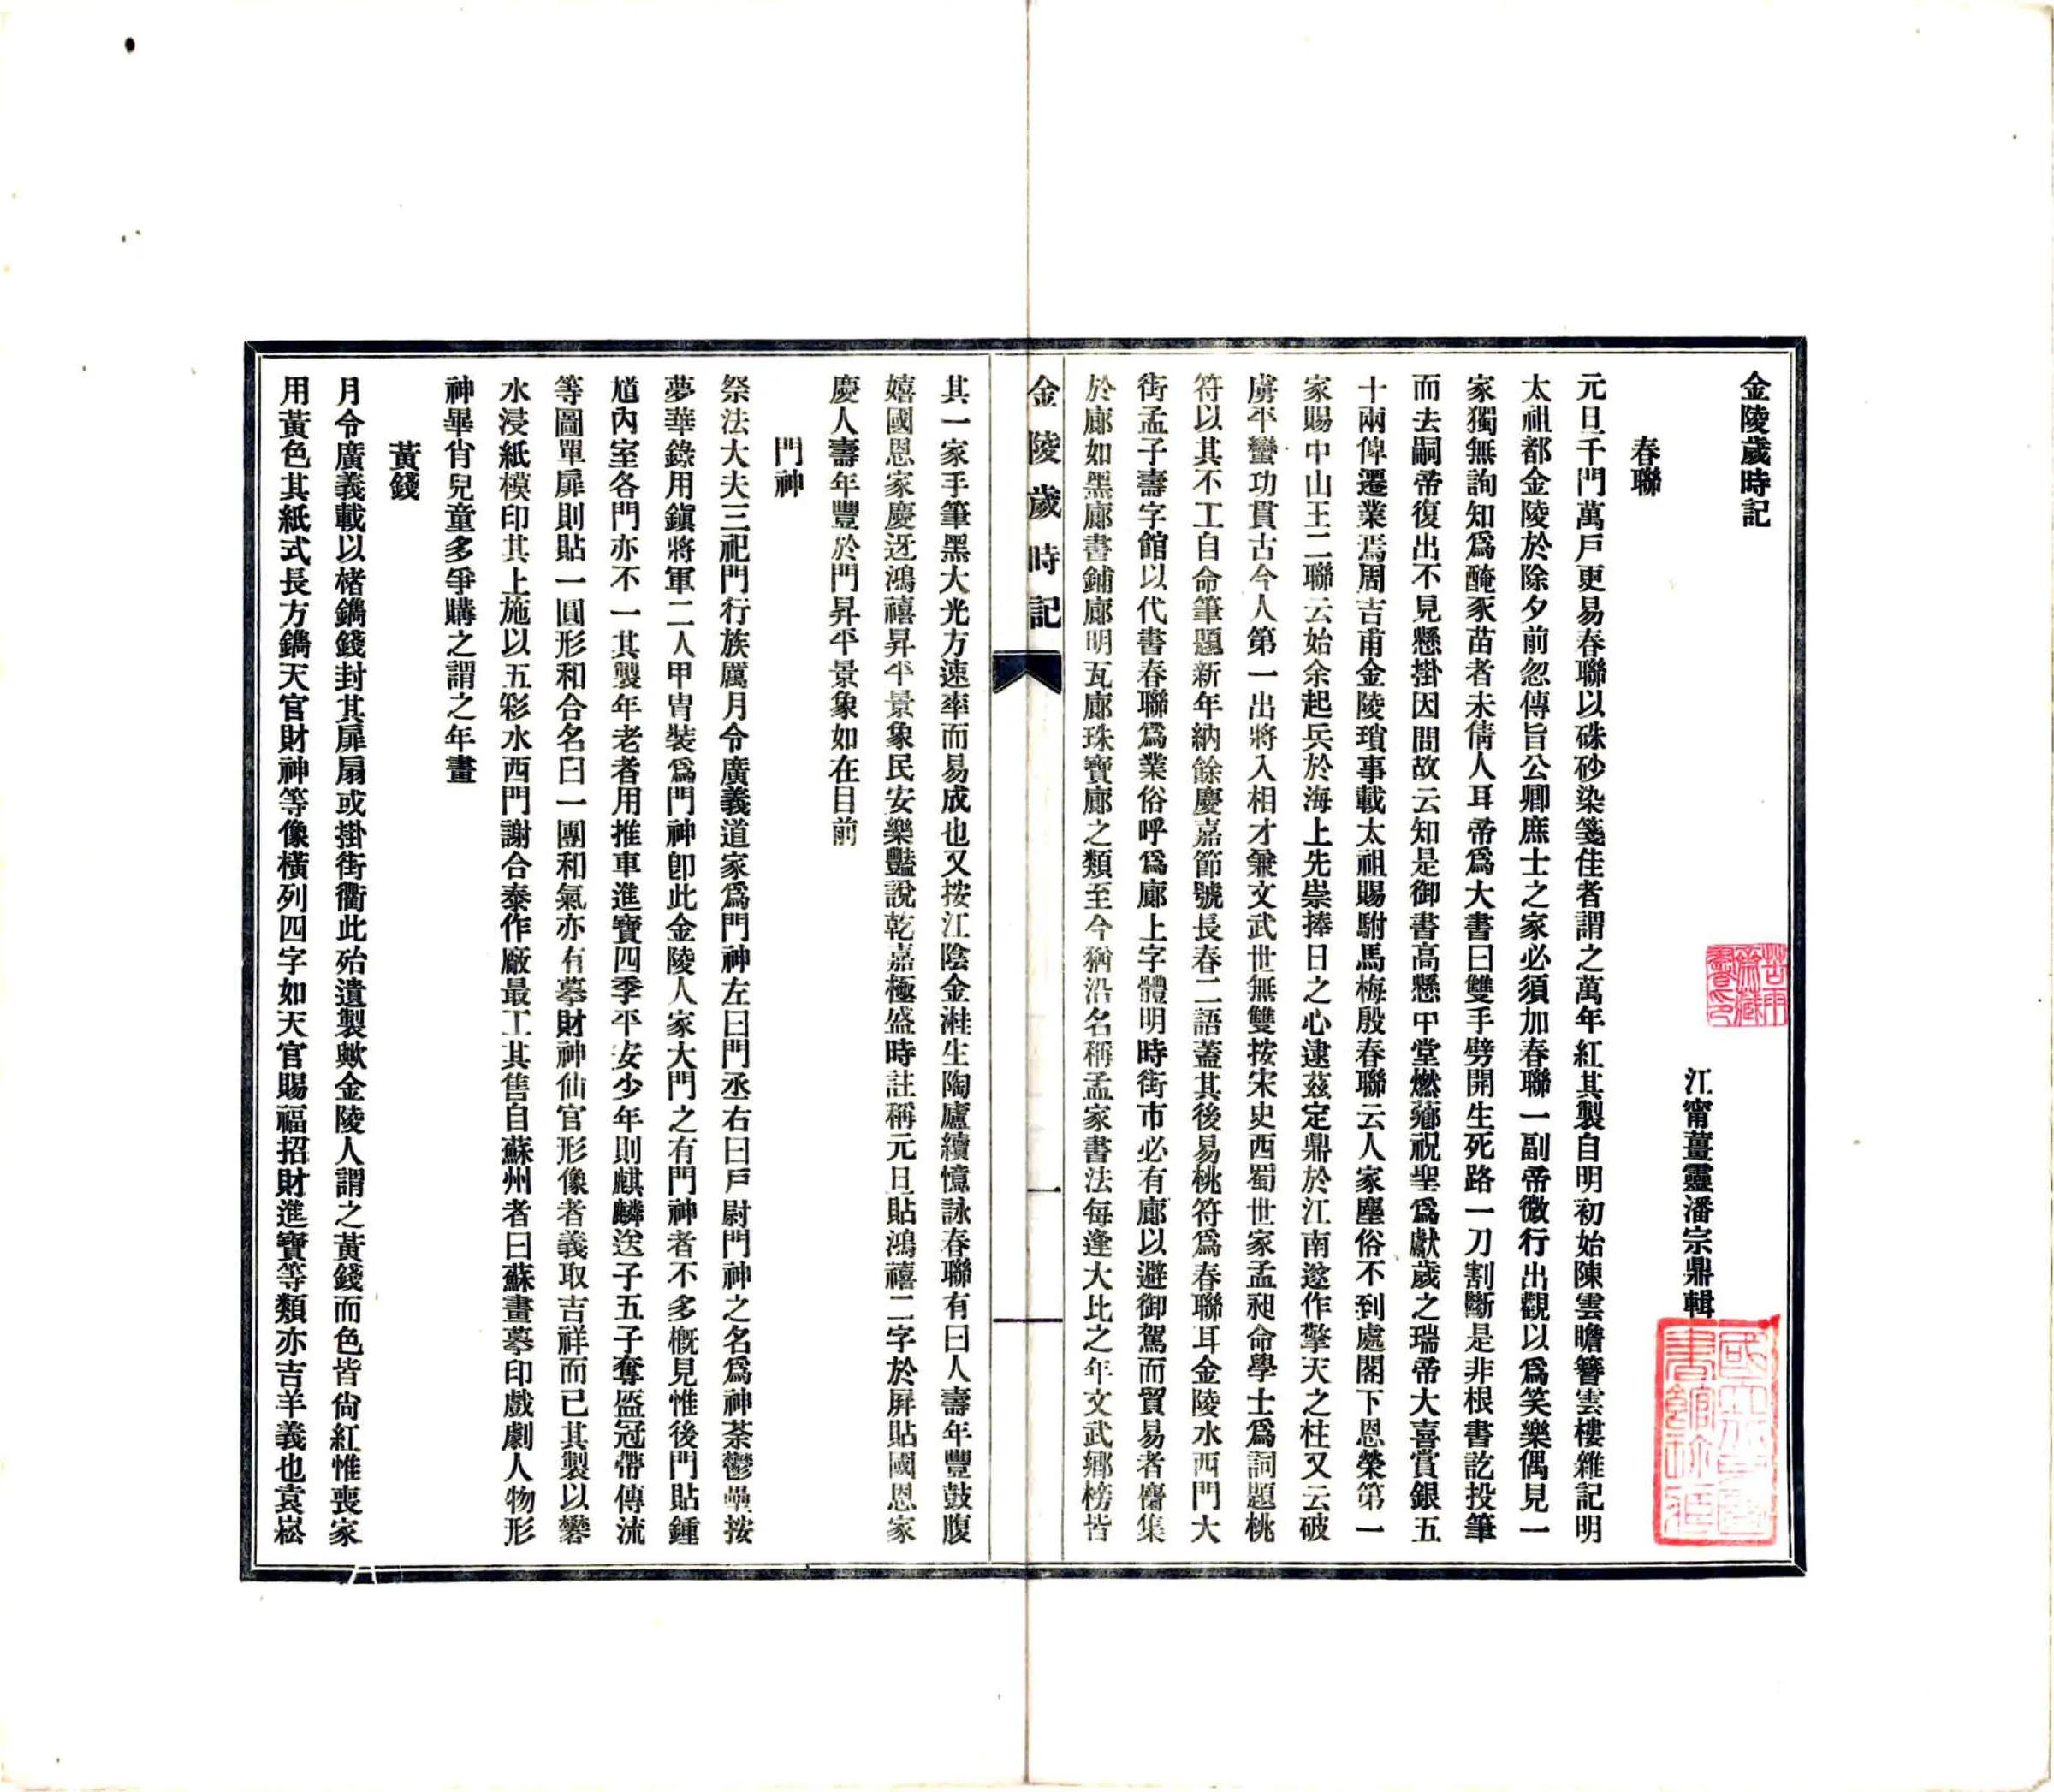 金陵歲時記
江甯薑靈潘宗鼎輯
春聯
元旦千門萬戶更易春聯以硃砂染箋佳者謂之萬年紅其製自明初始陳雲瞻簪雲樓雜記明
太祖都金陵於除夕前忽傳旨公卿庶士之家必須加春聯一副帝微行出觀以爲笑樂偶見一
家獨無詢知爲醃豕苗者未倩人耳帝爲大書曰雙手劈開生死路一刀割斷是非根書訖投筆
而去嗣帝復出不見懸掛因問故云知是御書高懸中堂燃薌祝聖爲獻歲之瑞帝大喜賞銀五
十兩俾遷業焉周吉甫金陵瑣事載太祖賜駙馬梅殷春聯云人家塵俗不到處閣下恩榮第一
家賜中山王二聯云始余起兵於海上先崇捧日之心逮茲定鼎於江南遂作擎天之柱又云破
虜平蠻功貫古今人第一出將入相才兼文武世無雙按宋史西蜀世家孟昶命學士爲詞題桃
符以其不工自命筆題新年納餘慶嘉節號長春二語蓋其後易桃符爲春聯耳金陵水西門大
街孟子壽字館以代書春聯爲業俗呼爲廊上字體明時街市必有廊以避御駕而貿易者麕集
於廊如黑廊書鋪廊明瓦廊珠寶廊之類至今猶沿名稱孟家書法每逢大比之年文武鄉榜皆
金陵歲時記
一
其一家手筆黑大光方速率而易成也又按江陰金溎生陶廬續憶詠春聯有曰人壽年豐鼓腹
嬉國恩家慶迓鴻禧昇平景象民安樂豔說乾嘉極盛時註稱元旦貼鴻禧二字於屏貼國恩家
慶人壽年豐於門昇平景象如在目前
門神
祭法大夫三祀門行族厲月令廣義道家爲門神左曰門丞右曰戶尉門神之名爲神荼鬱壘按
夢華錄用鎭將軍二人甲冑裝爲門神卽此金陵人家大門之有門神者不多槪見惟後門貼鍾
馗內室各門亦不一其製年老者用推車進寶四季平安少年則麒麟送子五子奪盔冠帶傳流
等圖單扉則貼一圓形和合名曰一團和氣亦有摹財神仙官形像者義取吉祥而已其製以礬
水浸紙模印其上施以五彩水西門謝合泰作廠最工其售自蘇州者曰蘇畫摹印戲劇人物形
神畢肖兒童多爭購之謂之年畫
黃錢
月令廣義載以楮鐫錢封其扉扇或掛街衢此殆遺製歟金陵人謂之黃錢而色皆尙紅惟喪家
用黃色其紙式長方鐫天官財神等像橫列四字如天官賜福招財進寶等類亦吉羊義也袁崧